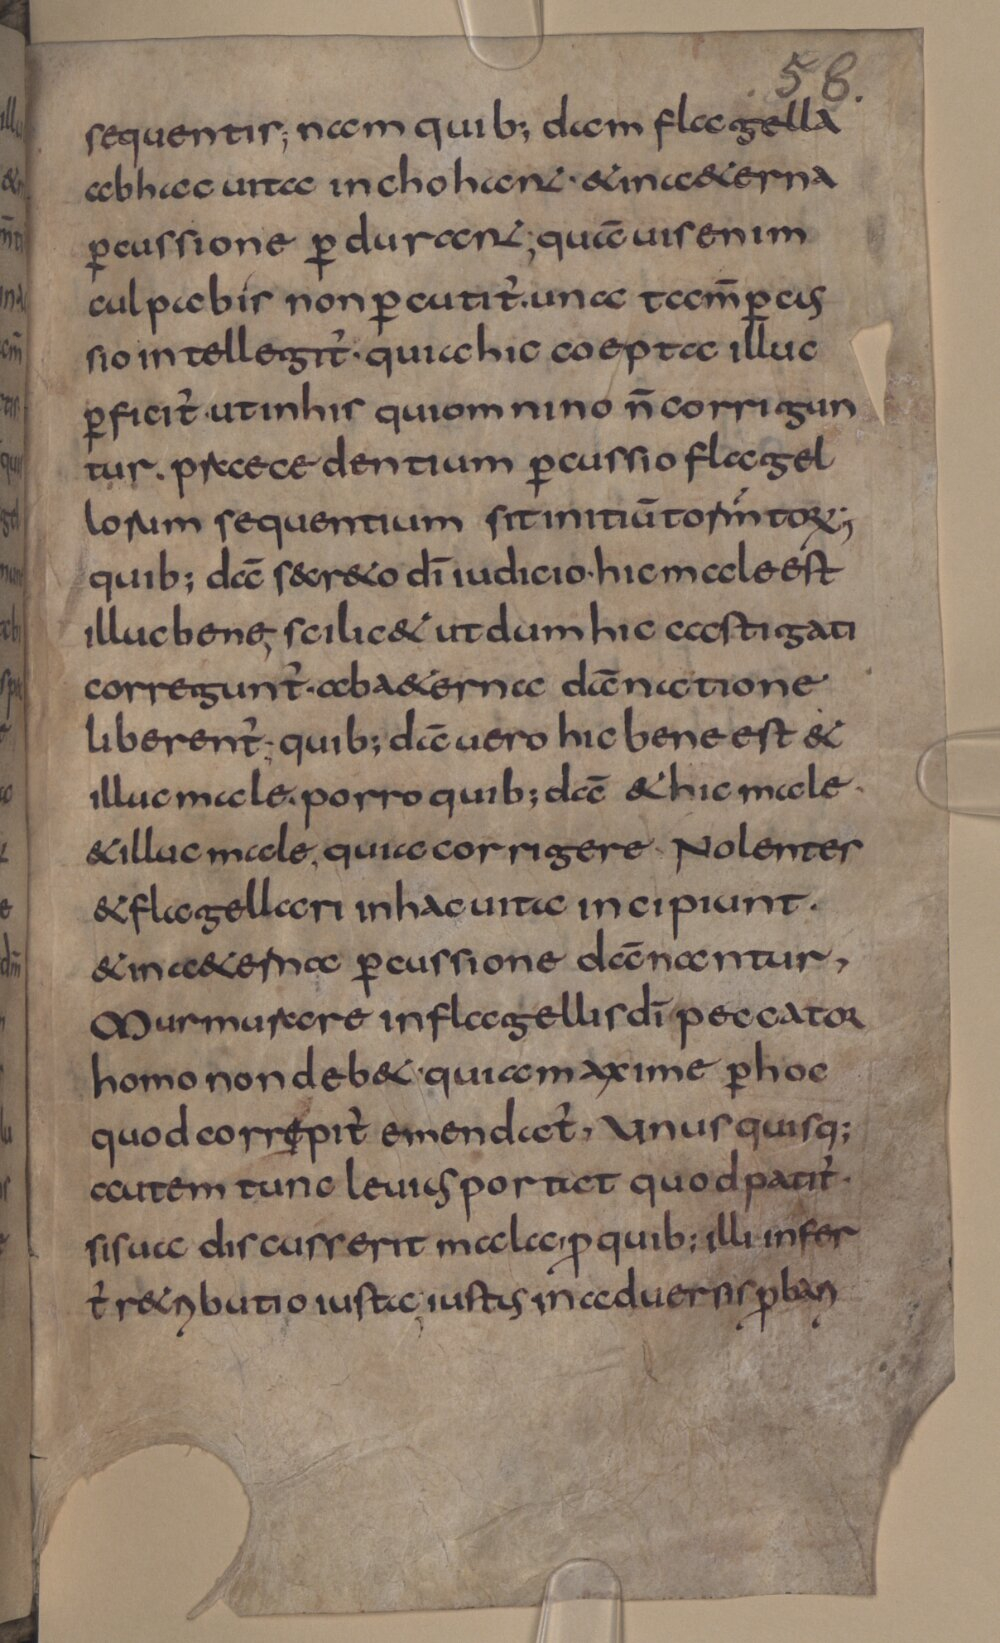 58.
sequentis; nam quib; dam flagella
ab hac uita inchohant· & in a&erna
ꝑcussione ꝑdurant; quāuis enim
culpabis non ꝑcutit᷑. una tam̄ ꝑcus
sio intellegit᷑· quia hic coepta illuc
ꝑficit᷑· ut in his qui omnino n̄ corrigun
tur. praecedentium ꝑcussio flagel
lorum sequentium sit initiū torm̄torꝝ;
quib; dā s&r&o dī iudicio· hic male est
illuc bene; scilic& ut dum hic castigati
corregunt᷑· ab a&erna dānatione
liberent᷑; quib; dā uero hic bene est &
illuc male. porro quib; dā & hic male·
& illuc male, quia corrigere Nolentes
& flagellari in hac uita incipiunt.
& in a&erna ꝑcussione dānantur,
Murmurare in flagellis dī peccator
homo non deb&· quia maxime ꝑ hoc
quod corrępit᷑ emendat᷑, Unusquisq;
autem tunc leuius portat quod patit᷑·
si sua discusserit mala, ꝓ quib; illi infer
t᷑ r&ributio iusta; iustus in aduersis ꝓbari